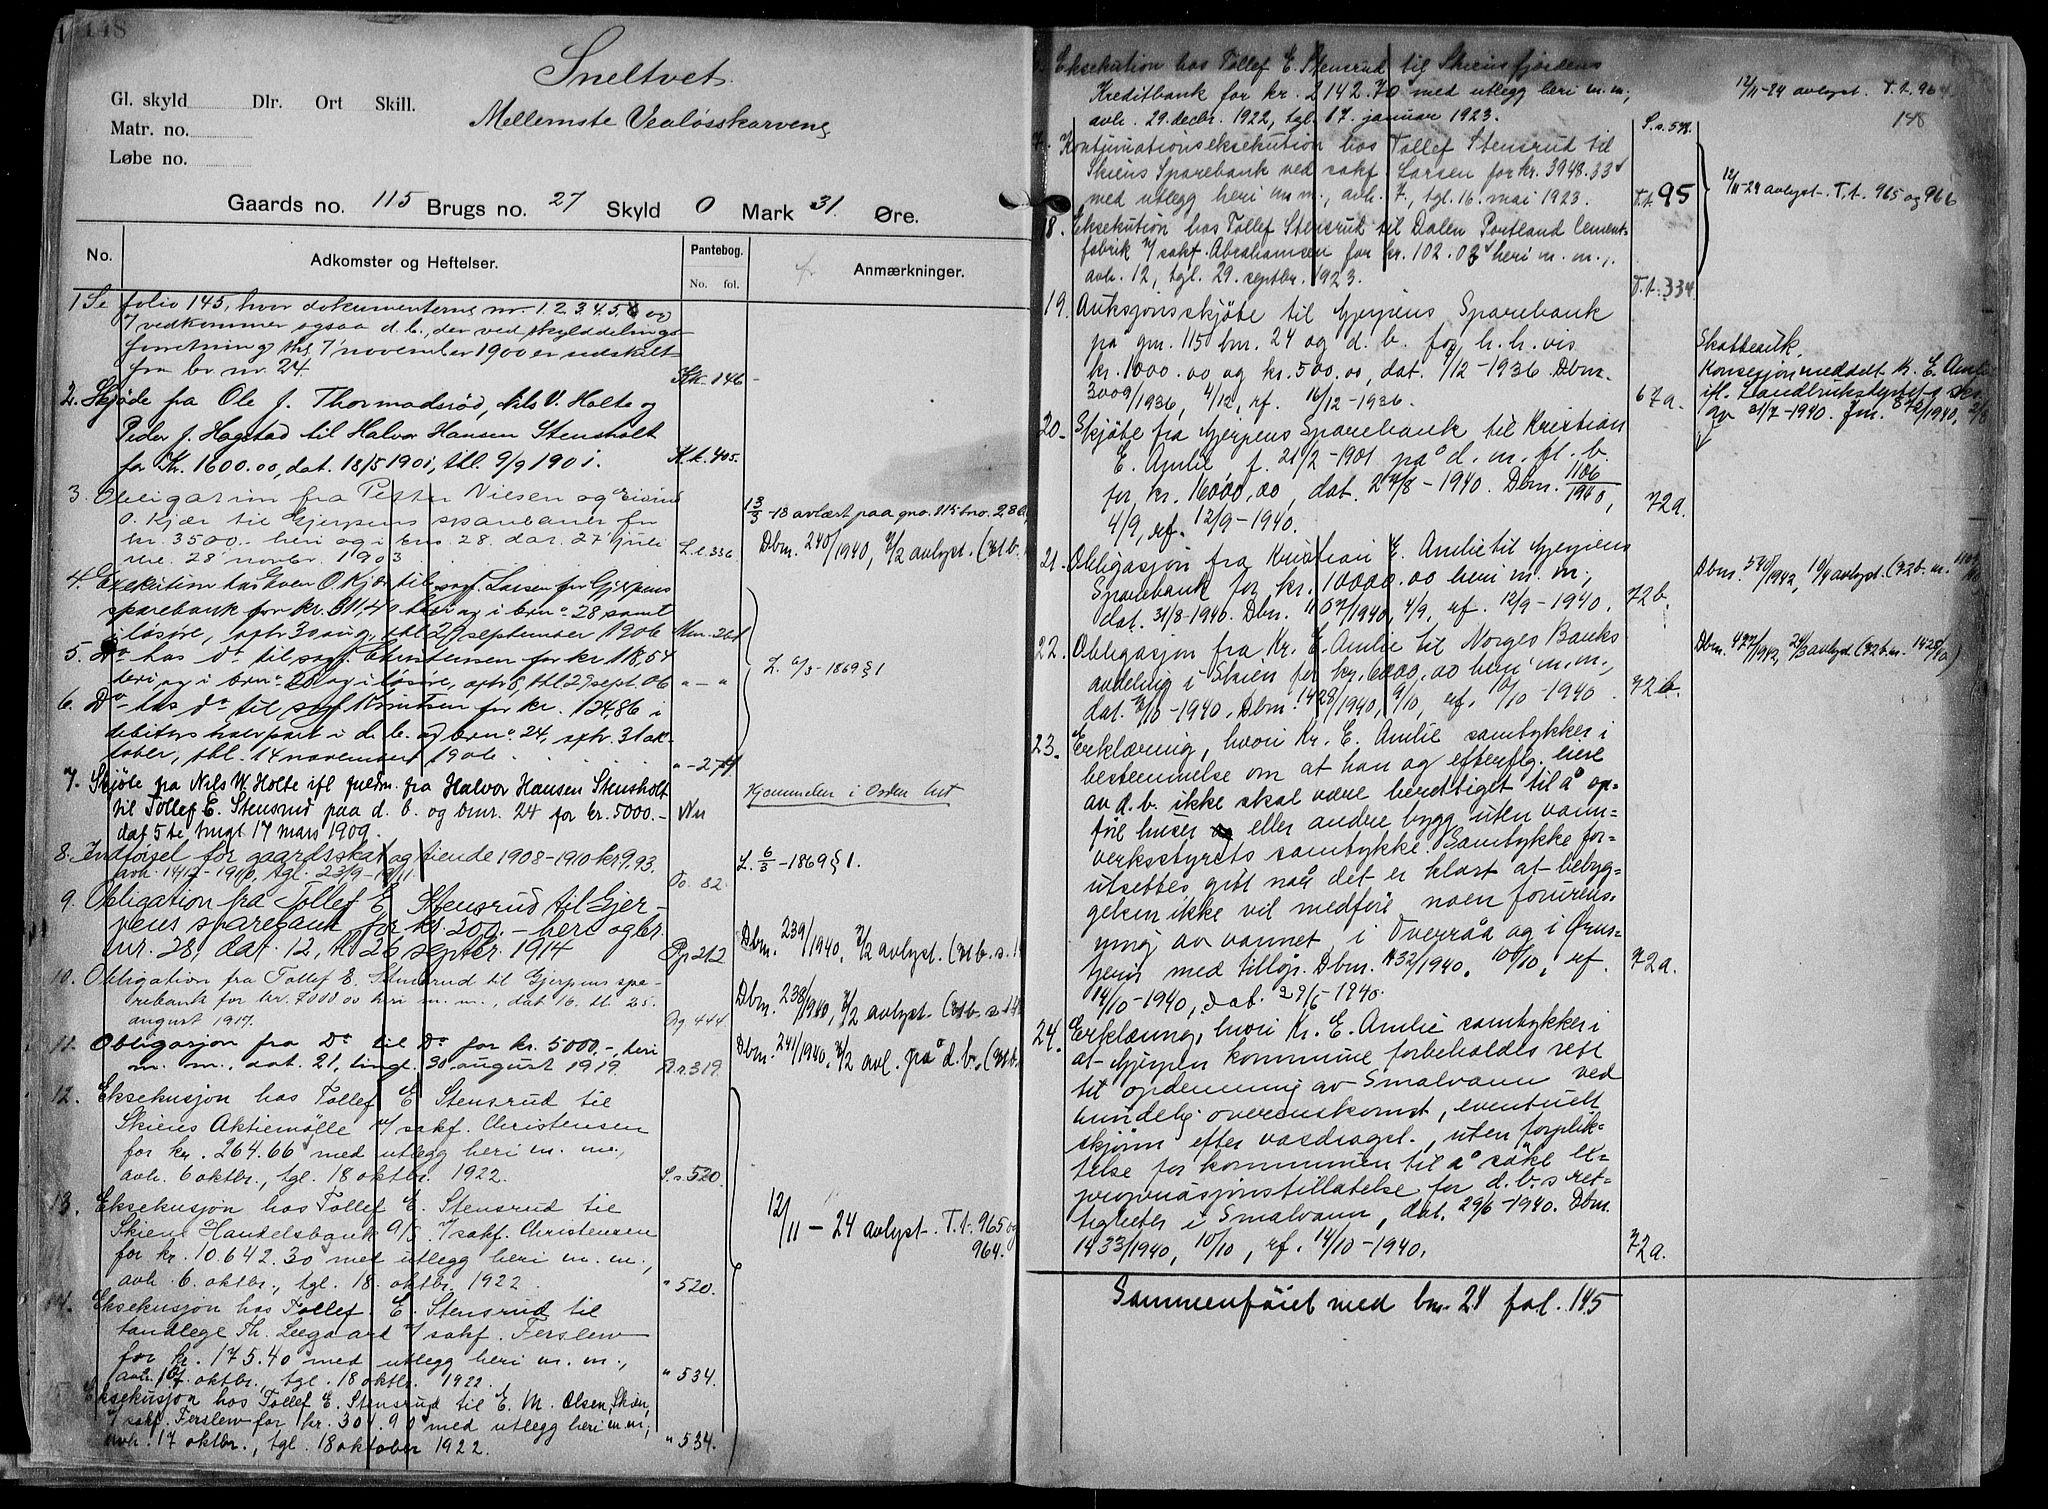 148
Sneltvet.
Gl. skyld Dlr. Ort Skill.
Mellemste Vealøsskarvene
Matr. no.
Løbe no.
Gaards no. 115 Brugs no. 27 Skyld 0 Mark 31. Øre.
No. Adkomster og Heftelser. Pantebog. No. fol. Anmærkninger.
1. Se folio 145, hvor dokumenterne nr. 1.2.3.4.5.6 og
7 vedkommer ogsaa d. b., der ved skylddelings-
forretning thl. 7 november 1900 er udskilt
fra br. nr. 24. 146
2. Skjøde fra Ole J. Thormodsrød, Nils V. Holte og
Peder J. Hogstad til Halvor Hansen Stensholt
for Kr. 1600.00, dat. 18/5 1901, thl. 9/9 1901. 405.
3. Obligation fra Petter Nielsen og
O. Kjær til Gjerpens sparebank for
kr. 3500.- heri og i bno. 28. dat. 27 juli
28 novbr. 1903 L.l. 336
13/3-18 avlæst paa gno. 115 bno. 28
Dbm. 240/1940, 2/2 avlyst.
4. Execution hos O Kjær til sagf. Larsen for Gjerpens
sparebank for kr. heri og i brno 28 samt
i løsøre, aphr 3 aug., thl 29 september 1906
5. Do hos do til sagf. Christensen for kr 118,54
heri og i brno 28 og i løsøre, aphr 5, thl 29 sept. 06 " - "
L. 6/3-1869 § 1
6. Do hos do til sagf Knutsen for kr. 124,86 i
debitors halvpart i d. b. og brno 24, aphr. 31 ok-
tober, thl. 14 november 1906.
7. Skjøte fra Nils W. Holte ifl fuldm. fra Halvor Hansen Stensholt
til Tollef E. Stensrud paa d. b. og bnr. 24 for kr. 5000.-
dat 5te tingl 17 mars 1909.
Hjemmelen i Orden
8. Indførsel for gaardsskat og tiende 1908-1910 kr 9,93.
L. 6/3-1869 § 1.
82.
9. Obligation fra Tollef E Stensrud til Gjer-
pens sparebank for kr. 200.- heri og br.
nr. 28, dat. 12, tl. 26 septbr. 1914 Pp 212
Dbm. 239/1940, 2/2 avlyst.
10. Obligation fra Tollef E. Stensrud til Gjerpens spa-
rebank for kr. 7000.00 heri m. m., dat 16. tl 25.
august 1917. 444
Dbm. 238/1940, 2/2 avlyst.
11. Obligasjon fra Do til Do for kr. 5000.-, heri
m. m., dat. 21, tingl. 30 august 1919. R.r. 319.
Dbm. 241/1940. 2/2 avl. på d. b.
12. Eksekusjon hos Tollef E Stensrud til
Skiens Aktiemølle v/ sakf. Christensen
for kr. 264.66 med utlegg heri m. m.,
avh. 6 oktbr., tgl. 18 oktbr. 1922. S.s. 520
13. Eksekusjon hos Tollef E. Stensrud til
Skiens Handelsbank A/S. v/ sakf. Christensen
for kr. 10.642.30 med utlegg heri m. m.,
avh. 6. oktbr., tgl. 18. oktbr. 1922. " 520.
12/11 - 24 avlyst. T.t. 965 og
964.
14. Eksekusjon hos Tollef. E. Stensrud til
tandlege Th. Leegaard v/ sakf. Ferslew
for kr. 175.40 med utlegg heri m. m.,
avh. oktbr., tgl. 18 oktbr. 1922. " 534.
Eksekusjon hos Tollef E. Stensrud til E. M. Olsen, Skien,
v/ sakf. Ferslew for kr. 304.90 med utlegg heri m m,
avh. 17 oktbr., tgl. 18 oktober 1922. " 534.
Eksekution hos Tollef E. Stensrud til Skiensfjordens
Kreditbank for kr. 2142.70 med utlegg heri m. m.,
avh. 29. decbr. 1922, tgl. 17. januar 1923. S.s. 578.
12/11-24 avlyst. T.t. 964
148
Kontinuationseksekution hos Tollef Stensrud til
Skiens Sparebank ved sakf. Larsen for kr. 3948.33
med utlegg heri m m., avh. 7., tgl. 16. mai 1923. T.t. 95
12/11-24 avlyst. T.t. 965 og 966
18. Eksekution hos Tollef Stensrud til Dalen Portland Cement-
fabrik v/ sakf. Abrahamsen for kr. 102.03 heri m. m.,
avh. 12, tgl. 29. septbr. 1923. T.t. 334
19. Auksjonsskjøte til Gjerpens Sparebank
på gnr. 115 bnr. 24 og d. b. for h. h. vis
kr. 1000.00 og kr. 500.00, dat. 1/12-1936 Dbm.
3009/1936, 4/12, rf. 16/12-1936. 67a.
Konsesjon meddelt K. E. Amlie
ifl. Landbruksdeptets skr.
av 31/7-1940.
20. Skjøte fra Gjerpens Sparebank til Kristian
E. Amlie f. 21/2-1901 på d. m. fl. b.
for kr. 16000.00, dat. 27/8-1940. Dbm. 1106/1940,
4/9, rf. 12/9-1940. 72a.
21. Obligasjon fra Kristian E. Amlie til Gjerpens
Sparebank for kr. 10000.00 heri m. m.,
dat. 31/8-1940. Dbm. 1107/1940, 4/9, rf. 12/9-1940. 72b.
22. Obligasjon fra Kr. E. Amlie til Norges Banks
avdeling i Skien for kr. 6000.00 heri m. m.,
dat. 2/10-1940. Dbm. 1428/1940, 9/10, rf. 10/10-1940. 72b.
23. Erklæring, hvori Kr. E. Amlie samtykker i
bestemmelse om at han og efterflg. eiere
av d. b. ikke skal være berettiget til å op-
føre huser eller andre bygg uten vann-
verksstyrets samtykke. Samtykke for-
utsettes gitt når det er klart at bebyg-
gelsen ikke vil medføre noen forurens-
ning av vannet i Overråa og i
med tilløp. Dbm. 1432/1940, 10/10, rf.
14/10-1940, dat. 29/6-1940. 72a.
24. Erklæring, hvori Kr. E. Amlie samtykker i
at Gjerpen kommune forbeholdes rett
til opdemning av Smalvann ved
mindelig overenskomst, eventuelt
skjønn efter vasdragsl., uten forplik-
telse for kommunen til å søke ex-
propriasjonstillatelse for d. b.s ret-
tigheter i Smalvann, dat. 29/6-1940. Dbm.
1433/1940, 10/10, rf. 14/10-1940. 72a.
Sammenføiet med bnr. 24 fol. 145